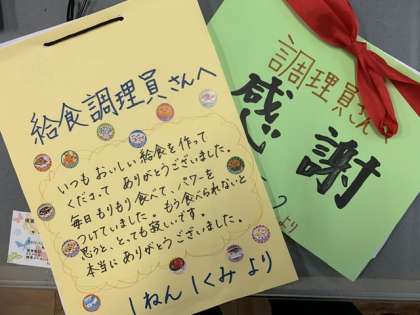 給食調理員さんへ
いつもおいしい給食を作って
くださって ありがとうございました。
毎日もりもり食べて、パワーを
つけていました。もう食べられないと
思うと、とっても寂しいです。
本当にありがとうございました。
1ねん1くみより
調理員さんへ
感謝
より